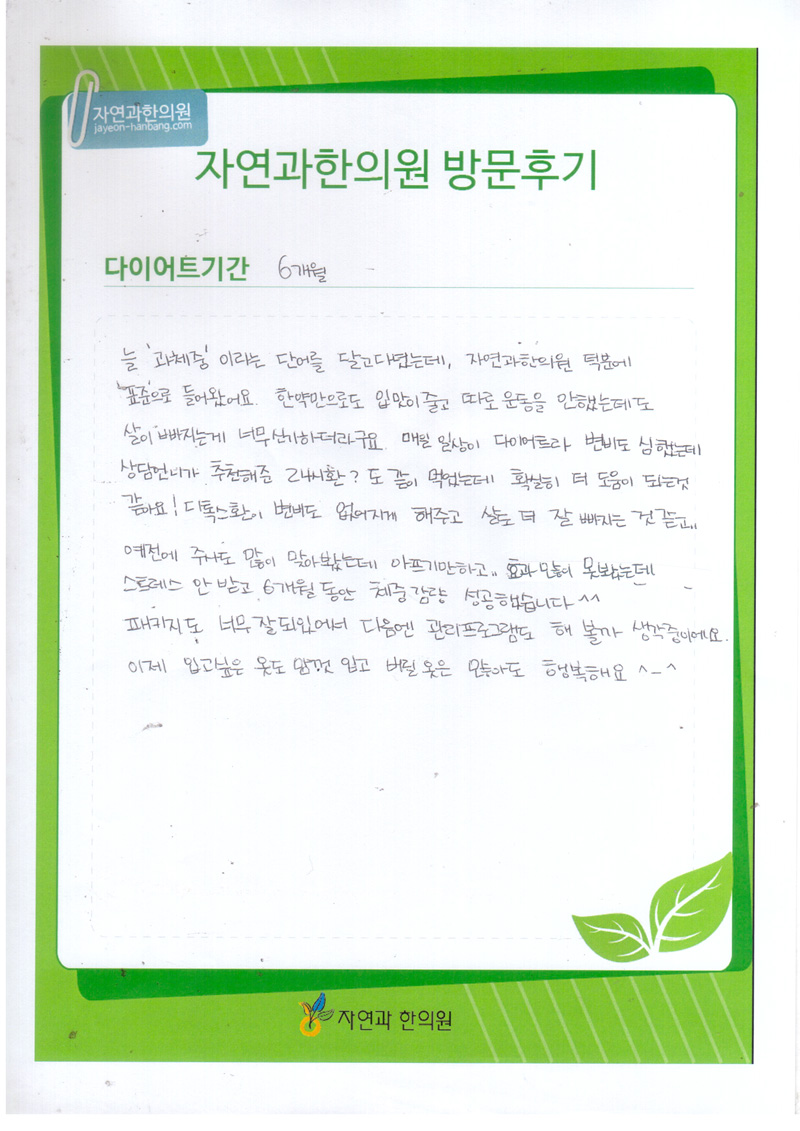 자연과한의원
jayeon-hanbang.com
자연과한의원 방문후기
다이어트기간 6개월
늘 '과체중' 이라는 단어를 달고다녔는데, 자연과한의원 턱분에
'표준'으로 들어왔어요. 한약만으로도 입맛이 줄고 따로 운동을 안했는데도
살이 빠지는게 너무신기하더라구요. 매일 일상이 다이어트라 변비도 심했는데
상담언니가 추천해준 24시환? 도 같이 먹었는데 확실히 더 도움이 되는것
같아요! 디톡스환이 변비도 없어지게 해주고 살도 더 잘 빠지는 것 같고..
예전에 주사도 많이 맞아봤는데 아프기만하고.. 효과 많이 못봤는데
스트레스 안 받고 6개월 동안 체중감량 성공했습니다^^
패키지도 너무 잘되있어서 다음엔 관리프로그램도 해 볼까 생각중이에요.
이제 입고싶은 옷도 맘껏 입고 버릴 옷은 모아도 행복해요 ^-^
자연과 한의원